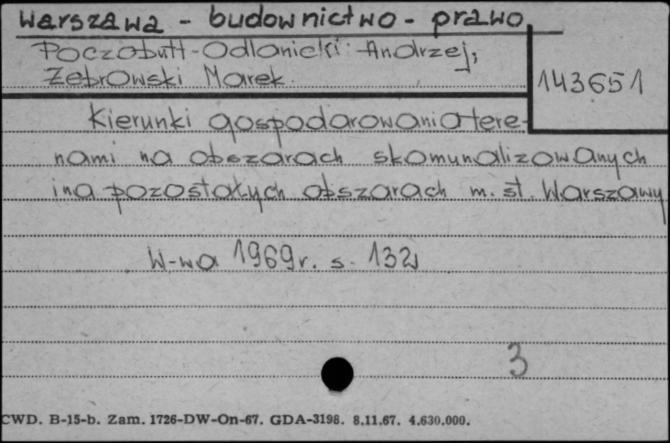 Warszawa - budownictwo - prawo
Poczobutt-Odlanicki Andrzej,
Żebrowski Marek
143651
Kierunki gospodarowania tere-
nami na obszarach skomunalizowanych
i na pozostałych obszarach m. st. Warszawy
W-wa 1969 r. s. 132
3
CWD. B-15-b. Zam. 1726-DW-On-67. GDA-3198. 8.11.67. 4.630.000.